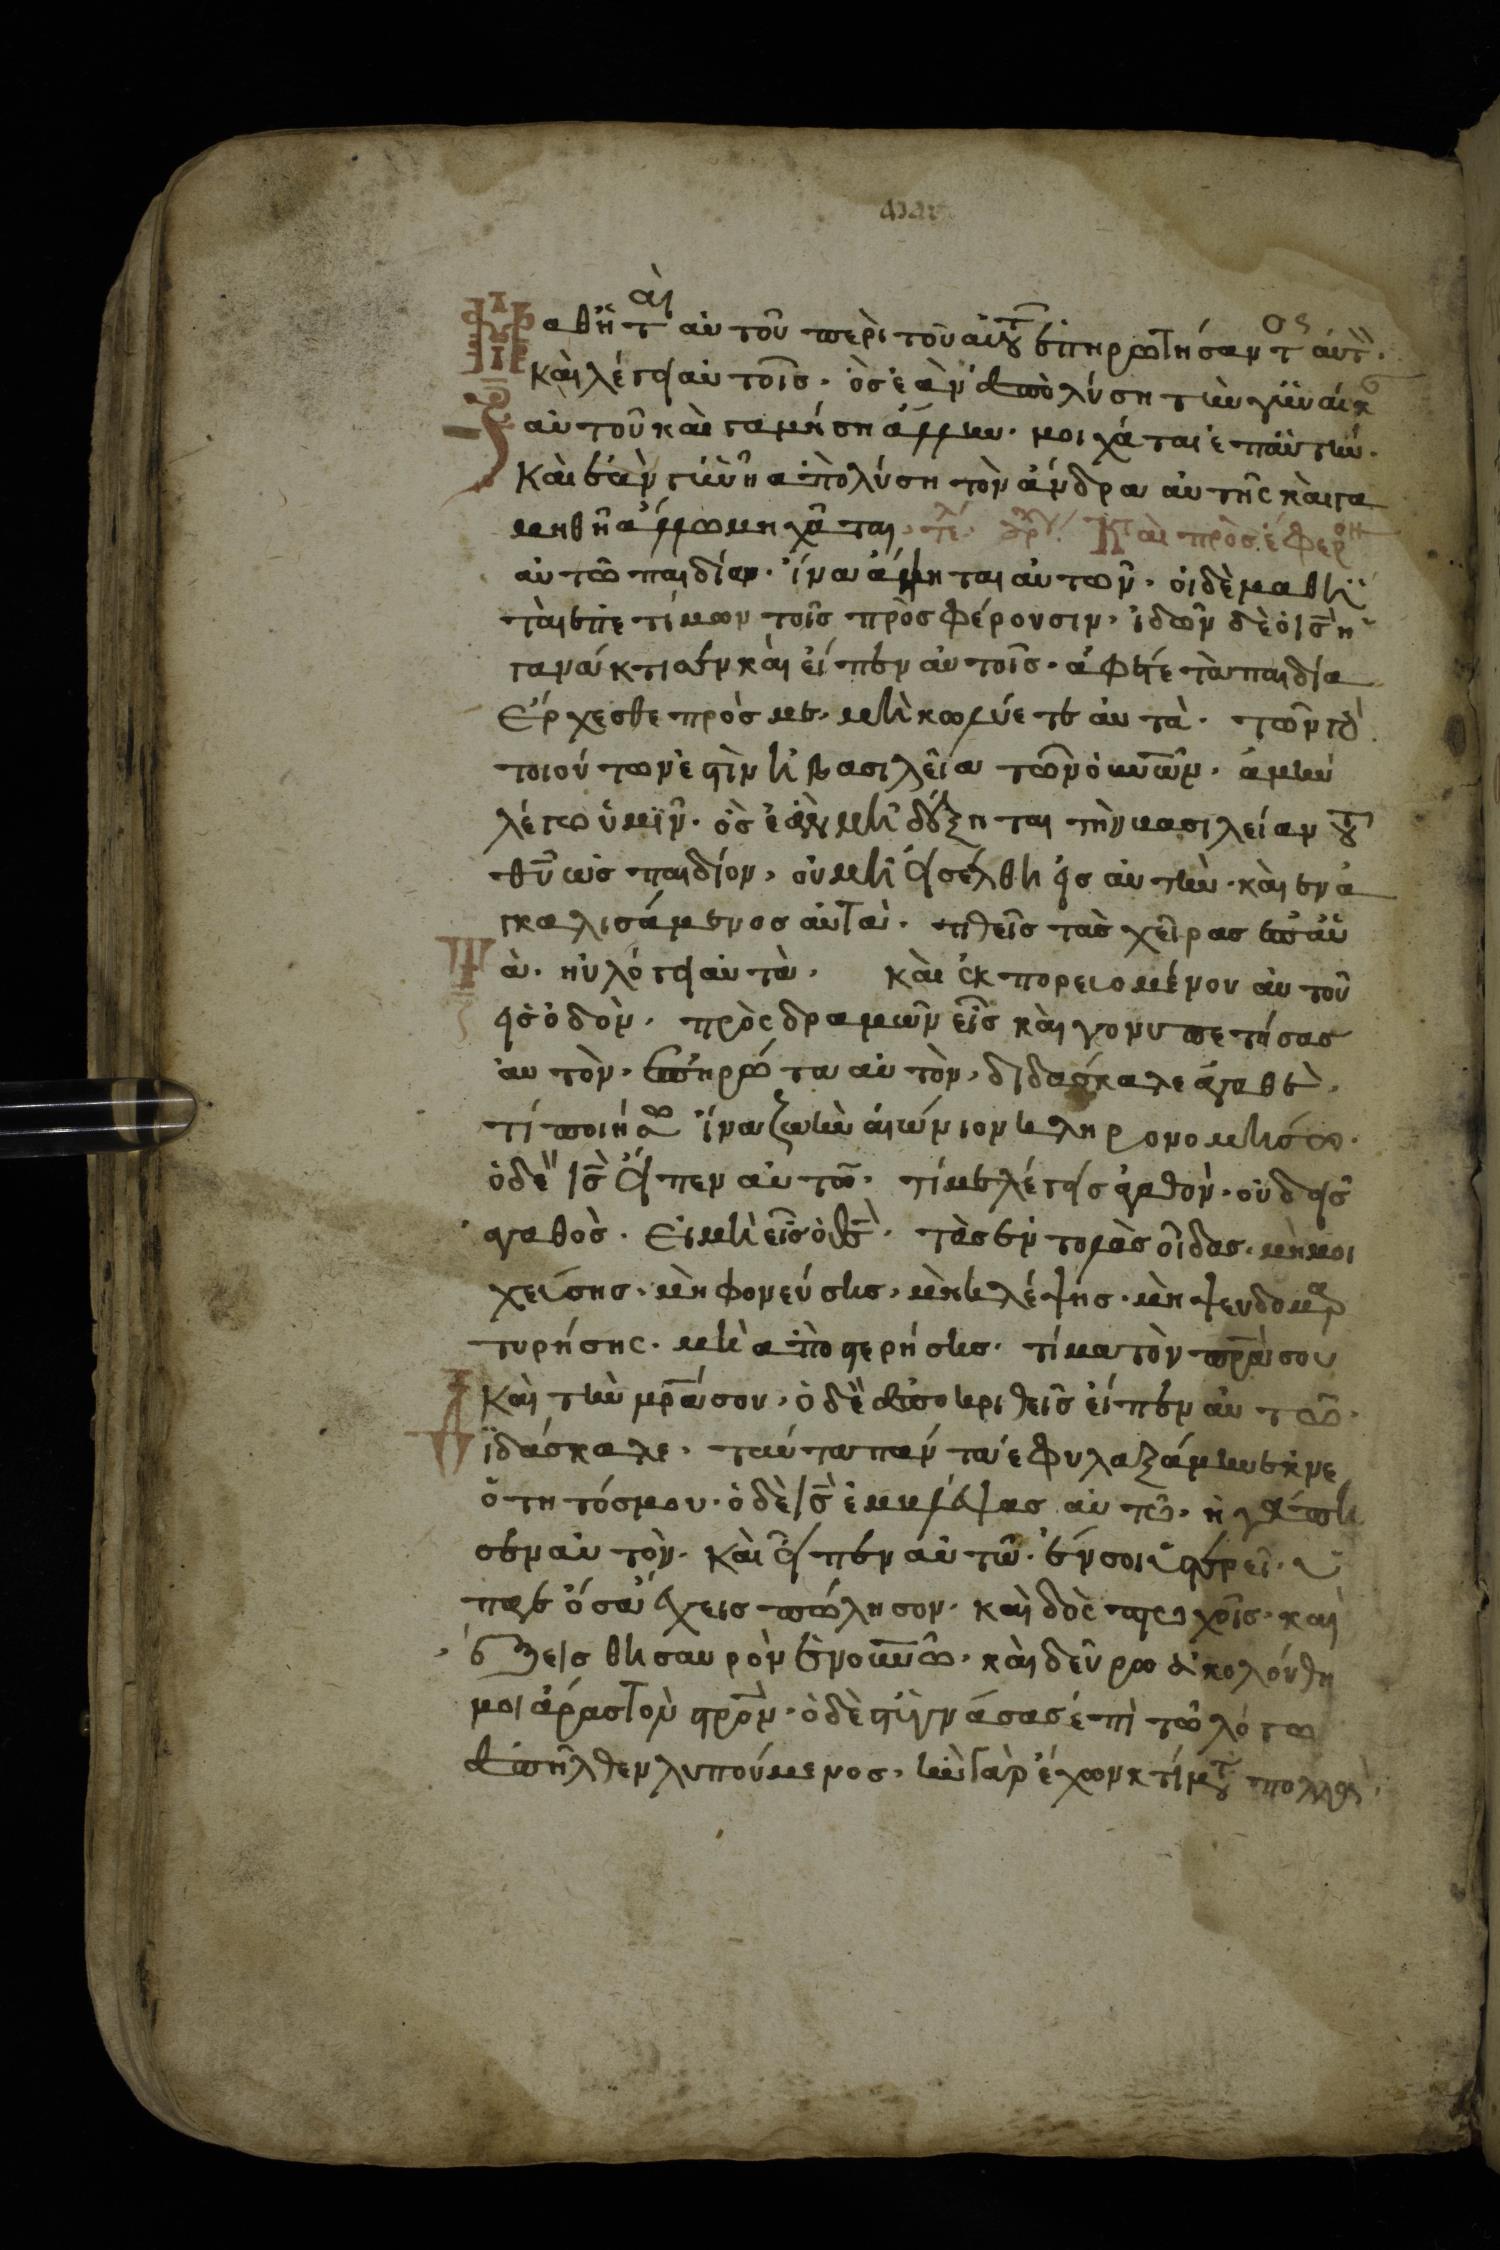 αθητ αὶ αὐτοῦ περὶ τοῦ αὐτοῦ ἐπηρώτησαν αὐτόν·
Καὶ λέγει αὐτοῖς· ὃς ἐὰν ἀπολύση τὴν γυναίκα
αὐτοῦ καὶ γαμήση ἄλλην· μοιχάται ἐπ αὐτήν·
Καὶ ἐὰν γυνὴ ἀπολύση τὸν ἄνδρα αὐτῆς καὶ γα
μηθῆ ἄλλω μηχᾶται· τέλ Καὶ πρὸσέφερον
αὐτῶ παιδία· ἵνα ἅψηται αὐτῶν· οἱ δὲ μαθη
ταὶ ἐπετίμων τοῖς πρὸσφέρουσιν· ἰδῶν δὲ ὁ ις ἠ
γανάκτισεν καὶ εἶπεν αὐτοῖς· ἄφετε τὰ παιδία
Ἔρχεσθε πρός με· μὴ κωλύετε αὐτὰ· τῶν γὰρ
τοιούτων ἐστὶν ἡ βασιλεῖα τῶν οὐνῶν· ἀμὴν
λέγω ὑμῖν· ὃς ἐὰν μὴ δέξηται τὴν βασιλείαν τοῦ
θῦ ὡς παιδίον· οὐ μὴ εἰσέλθη εἰς αὐτὴν· καὶ ἐνα
γκαλισάμενος αὐτὰ· τιθεὶς τὰς χεῖρας ἐπ αὐ
ὰ· ηὐλόγει αὐτὰ· καὶ ἐκπορευομένου αὐτοῦ
εἰς ὁδὸν· πρὸςδραμῶν εἷς καὶ γονυπετήσας
αὐτὸν· ἐπηρώτα αὐτὸν· διδάσκαλε ἀγαθὲ·
τί ποιήσω ἵνα ζωὴν αἰώνιον κληρονομήσω·
ὁ δὲ ις εἶπεν αὐτῶ· τί με λέγεις ἀγαθὸν· οὐδεὶς
ἀγαθὸς· Εἰ μὴ εἷς ὁ θς· τὰς ἐντολὰς οἶδας· μὴ μοι
χεύσης· μὴ φονεύσης· μὴ κλέψης· μὴ ψευδομαρ
τυρήσης· μὴ ἀποστερήσης· τίμα τὸν πρᾶ σου
Καὶ τὴν μρᾶ σου· ὁ δὲ ἀποκριθεὶς εἶπεν αὐτῶ·
ϊδάσκαλε· ταῦτα πάντα ἐφυλαξάμην ἐκ νε
ότητός μου· ὁ δὲ ις ἐμβλέψας αὐτῶ· ἠγάπη
σεν αὐτὸν· Καὶ εἶπεν αὐτῶ· ἕν σοι ὑστερεῖ· ὕ
παγε ὅσα ἔχεις πώλησον· καὶ δὸς πτωχοῖς· καὶ
ἕξεις θησαυρὸν ἐν οὐνῶ· καὶ δεῦρω ἀκολούθη
μοι ἄρας τὸν στρον· ὁ δὲ στυγνάσας ἐπὶ τῶ λόγω
ἀπῆλθεν λυπούμενος· ἦν γὰρ ἔχων κτήματα πολλὰ·